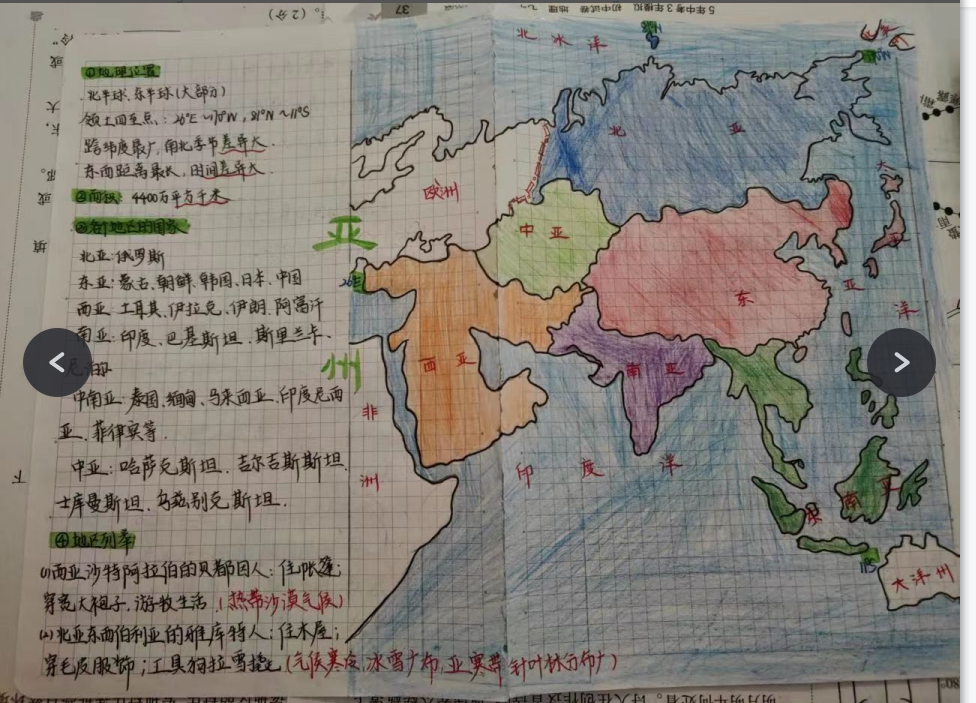 ①地理位置
北半球、东半球(大部分)
跨纬度最广,南北季节差异大.
东西距离最长,时间差异大.
②面积: 4400万平方千米
③各个地区的国家
北亚:俄罗斯
东亚:蒙古、朝鲜、韩国、日本、中国
西亚:土耳其、伊拉克、伊朗、阿富汗
南亚:印度、巴基斯坦、斯里兰卡、
中南亚:泰国、缅甸、马来西亚、印度尼西
亚、菲律宾等.
中亚:哈萨克斯坦、吉尔吉斯斯坦、
土库曼斯坦、乌兹别克斯坦.
④地区列举
(1)西亚沙特阿拉伯的贝都因人:住帐篷;
穿宽大袍子,游牧生活.(热带沙漠气候)
(2)北亚东西伯利亚的雅库特人:住木屋;
穿毛皮服饰;工具狗拉雪橇(气候寒冷,冰雪广布,亚寒带针叶林分布广)
亚
州
北冰洋
北亚
欧洲
中亚
东亚
西亚
南亚
东南亚
非洲
印度洋
太平洋
大洋州
26°E
37
5年中考3年模拟 初中试卷 地理
(2分)